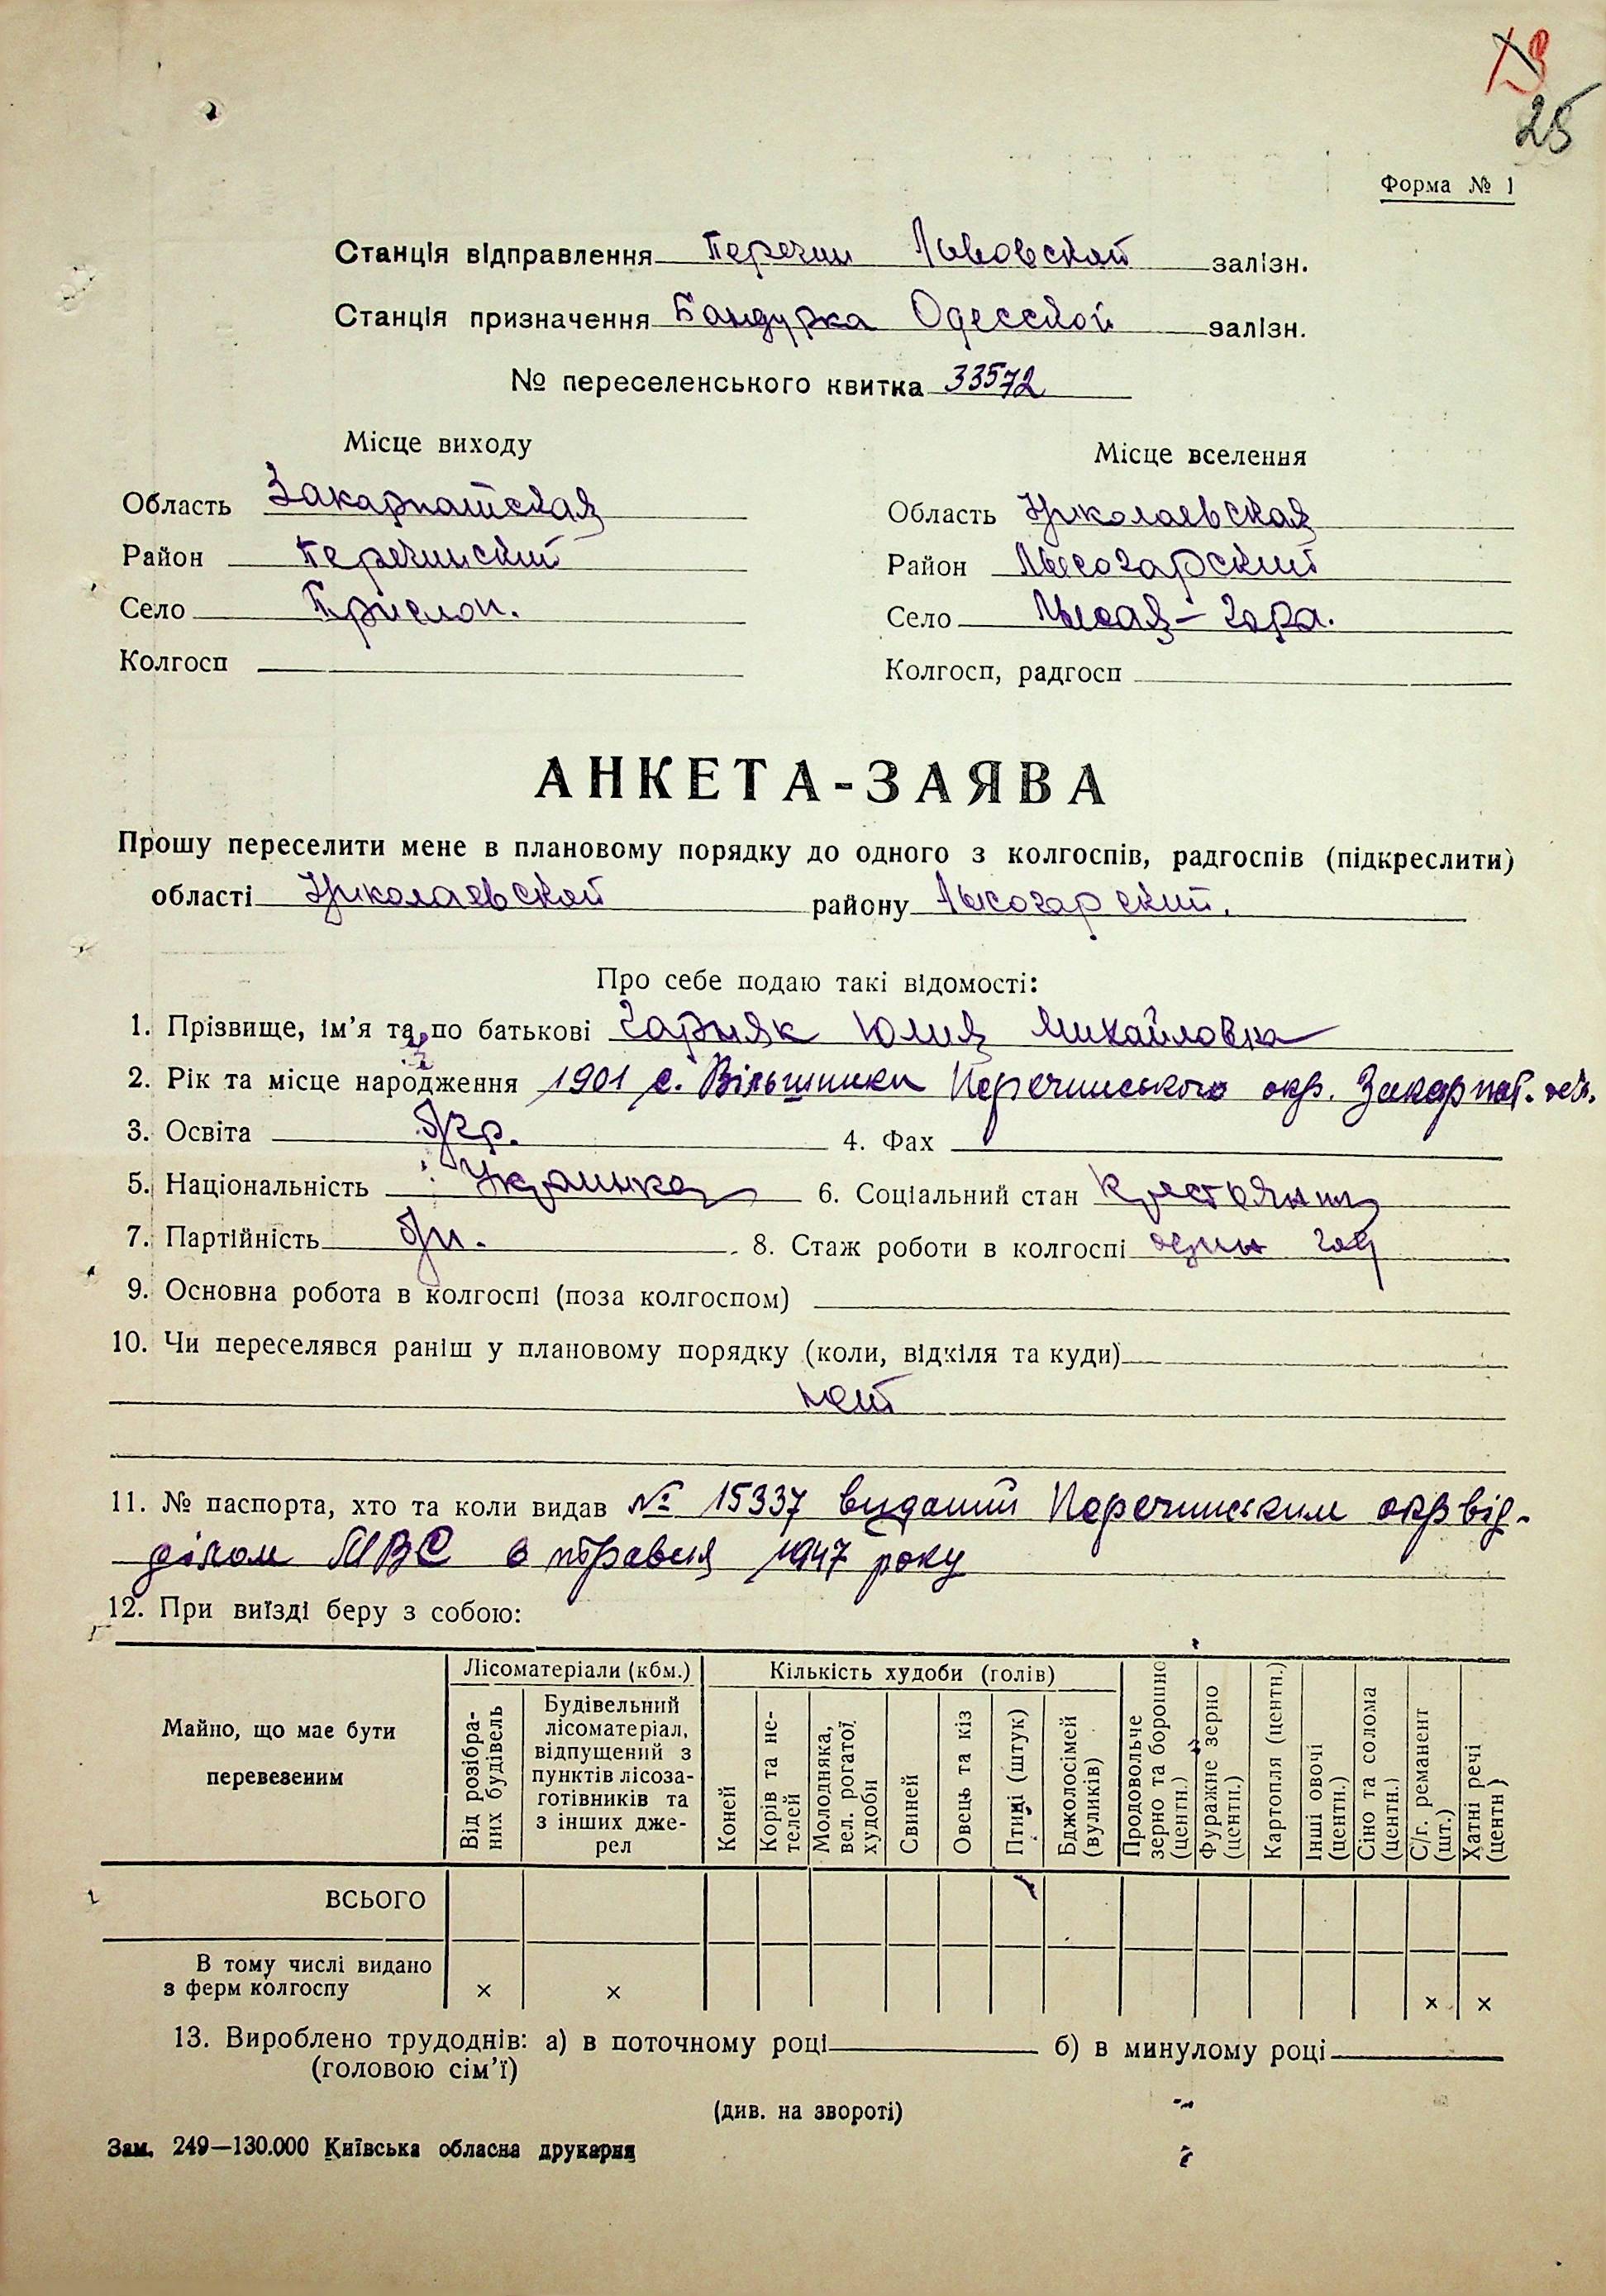 13
25
Форма № 1
Станція відправлення Перечин Львовской залізн.
Станція призначення Бандурка Одесской залізн.
№ переселенського квитка 33572
Місце виходу
Область Закарпатская
Район Перечинский
Село Прислоп.
Колгосп
Місце вселення
Область Николаевская
Район Лысогорский
Село Лысая-Гора.
Колгосп, радгосп
АНКЕТА-ЗАЯВА
Прошу переселити мене в плановому порядку до одного з колгоспів, радгоспів (підкреслити)
області Николаевской району Лысогорский.
Про себе подаю такі відомості:
1. Прізвище, ім'я та по батькові Горняк Юлия Михайловна
2. Рік та місце народження 1901 с. Вільшинки Перечинського окр. Закарпат. обл.
3. Освіта б/гр. 4. Фах
5. Національність Украинка 6. Соціальний стан Крестьянка
7. Партійність б/п. 8. Стаж роботи в колгоспі один год
9. Основна робота в колгоспі (поза колгоспом)
10. Чи переселявся раніш у плановому порядку (коли, відкіля та куди)
нет
11. № паспорта, хто та коли видав № 15337 виданий Перечинським окрвід-
ділом МВС 6 травня 1947 року
12. При виїзді беру з собою:
Майно, що має бути перевезеним
Лісоматеріали (кбм.)
Від розібра-
них будівель
Будівельний
лісоматеріал,
відпущений з
пунктів лісоза-
готівників та
з інших дже-
рел
Кількість худоби (голів)
Коней
Корів та не-
телей
Молодняка,
вел. рогатої
худоби
Свиней
Овець та кіз
Птиці (штук)
Бджолосімей
(вуликів)
Продовольче
зерно та борошно
(центн.)
Фуражне зерно
(центн.)
Картопля (центн.)
Інші овочі
(центн.)
Сіно та солома
(центн.)
С/г. реманент
(шт.)
Хатні речі
(центн)
ВСЬОГО
В тому числі видано
з ферм колгоспу × × × ×
13. Вироблено трудоднів: а) в поточному році б) в минулому році
(головою сім'ї)
(див. на звороті)
Зам. 249—130.000 Київська обласна друкарня